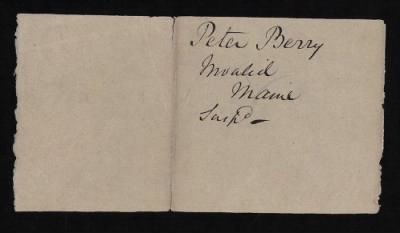 Peter Berry
Invalid
Maine
Suspd